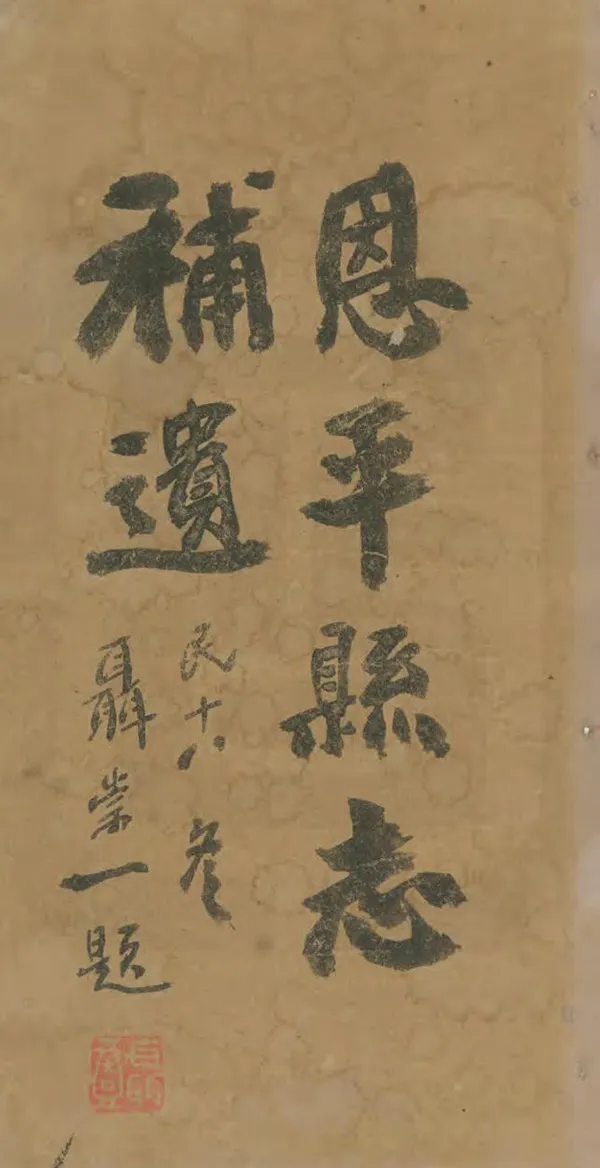 恩平縣志
補遺
民十八冬
聶崇一題